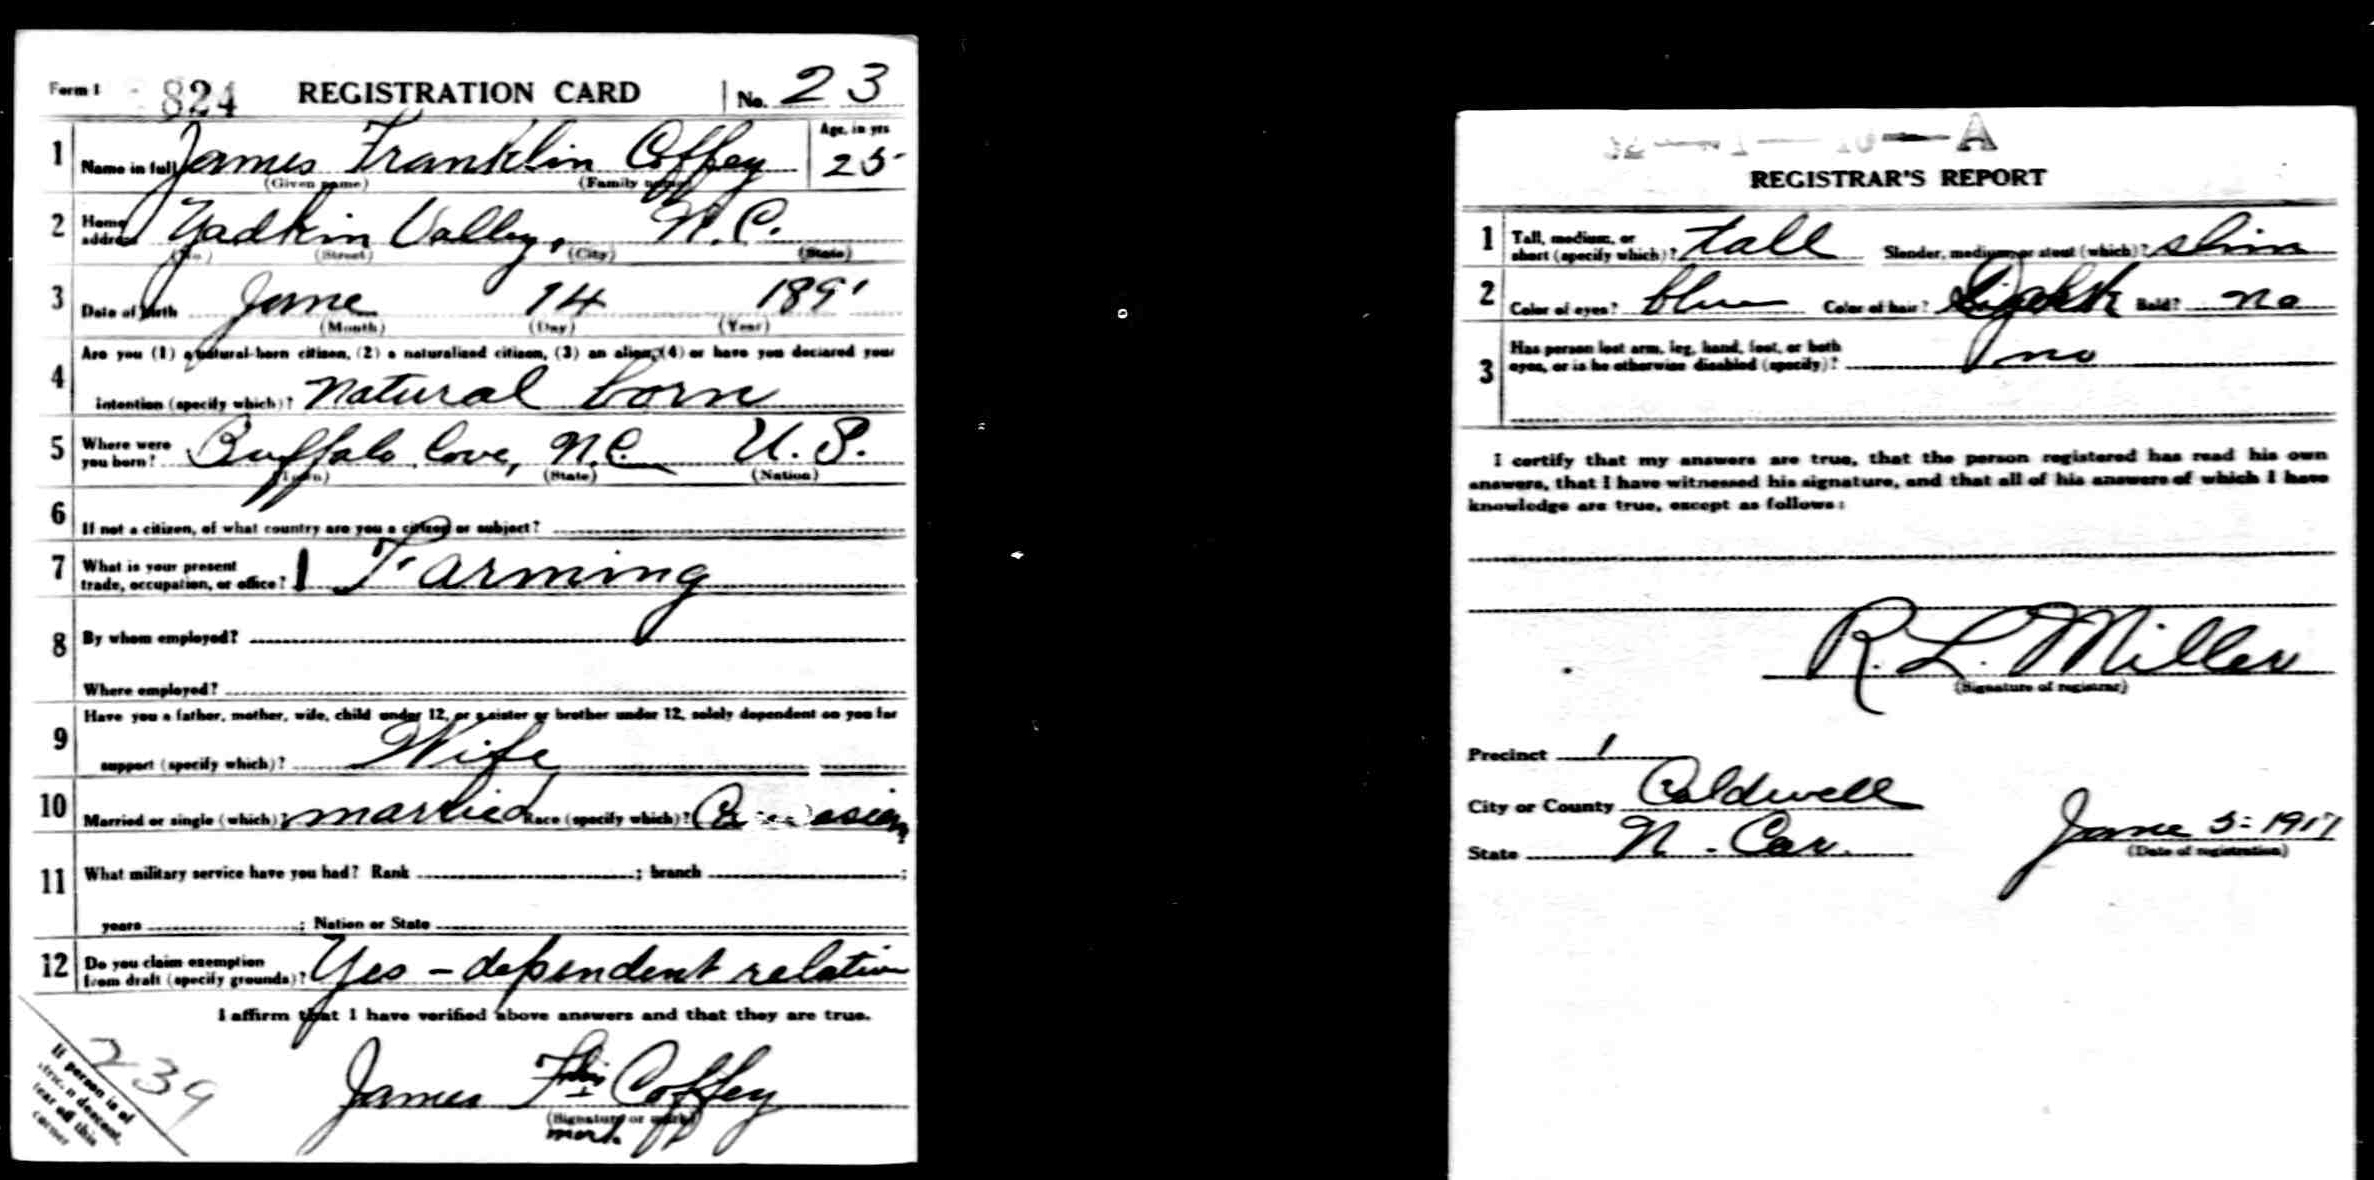 Form 1 824 REGISTRATION CARD No. 23
1 Name in full James Franklin Coffey Age, in yrs 25
(Given name) (Family name)
2 Home address Yadkin Valley, N.C.
(No.) (Street) (City) (State)
3 Date of birth June 14 1891
(Month) (Day) (Year)
4 Are you (1) a natural-born citizen, (2) a naturalized citizen, (3) an alien, (4) or have you declared your
intention (specify which)? natural born
5 Where were you born? Buffalo Cove, N.C. U.S.
(Town) (State) (Nation)
6 If not a citizen, of what country are you a citizen or subject?
7 What is your present trade, occupation, or office? 1 Farming
8 By whom employed?
Where employed?
9 Have you a father, mother, wife, child under 12, or a sister or brother under 12, solely dependent on you for
support (specify which)? Wife
10 Married or single (which)? married Race (specify which)? Caucasian
11 What military service have you had? Rank ; branch ;
years ; Nation or State
12 Do you claim exemption from draft (specify grounds)? Yes - dependent relative
I affirm that I have verified above answers and that they are true.
James his Coffey
(Signature or mark)
mark
239
If person is of
descent,
tear off this
corner
A
REGISTRAR'S REPORT
1 Tall, medium, or short (specify which)? tall Slender, medium, or stout (which)? slim
2 Color of eyes? blue Color of hair? Bald? no
3 Has person lost arm, leg, hand, foot, or both
eyes, or is he otherwise disabled (specify)? no
I certify that my answers are true, that the person registered has read his own
answers, that I have witnessed his signature, and that all of his answers of which I have
knowledge are true, except as follows:
R. L. Miller
(Signature of registrar)
Precinct 1
City or County Caldwell
State N. Car. June 5 - 1917
(Date of registration)